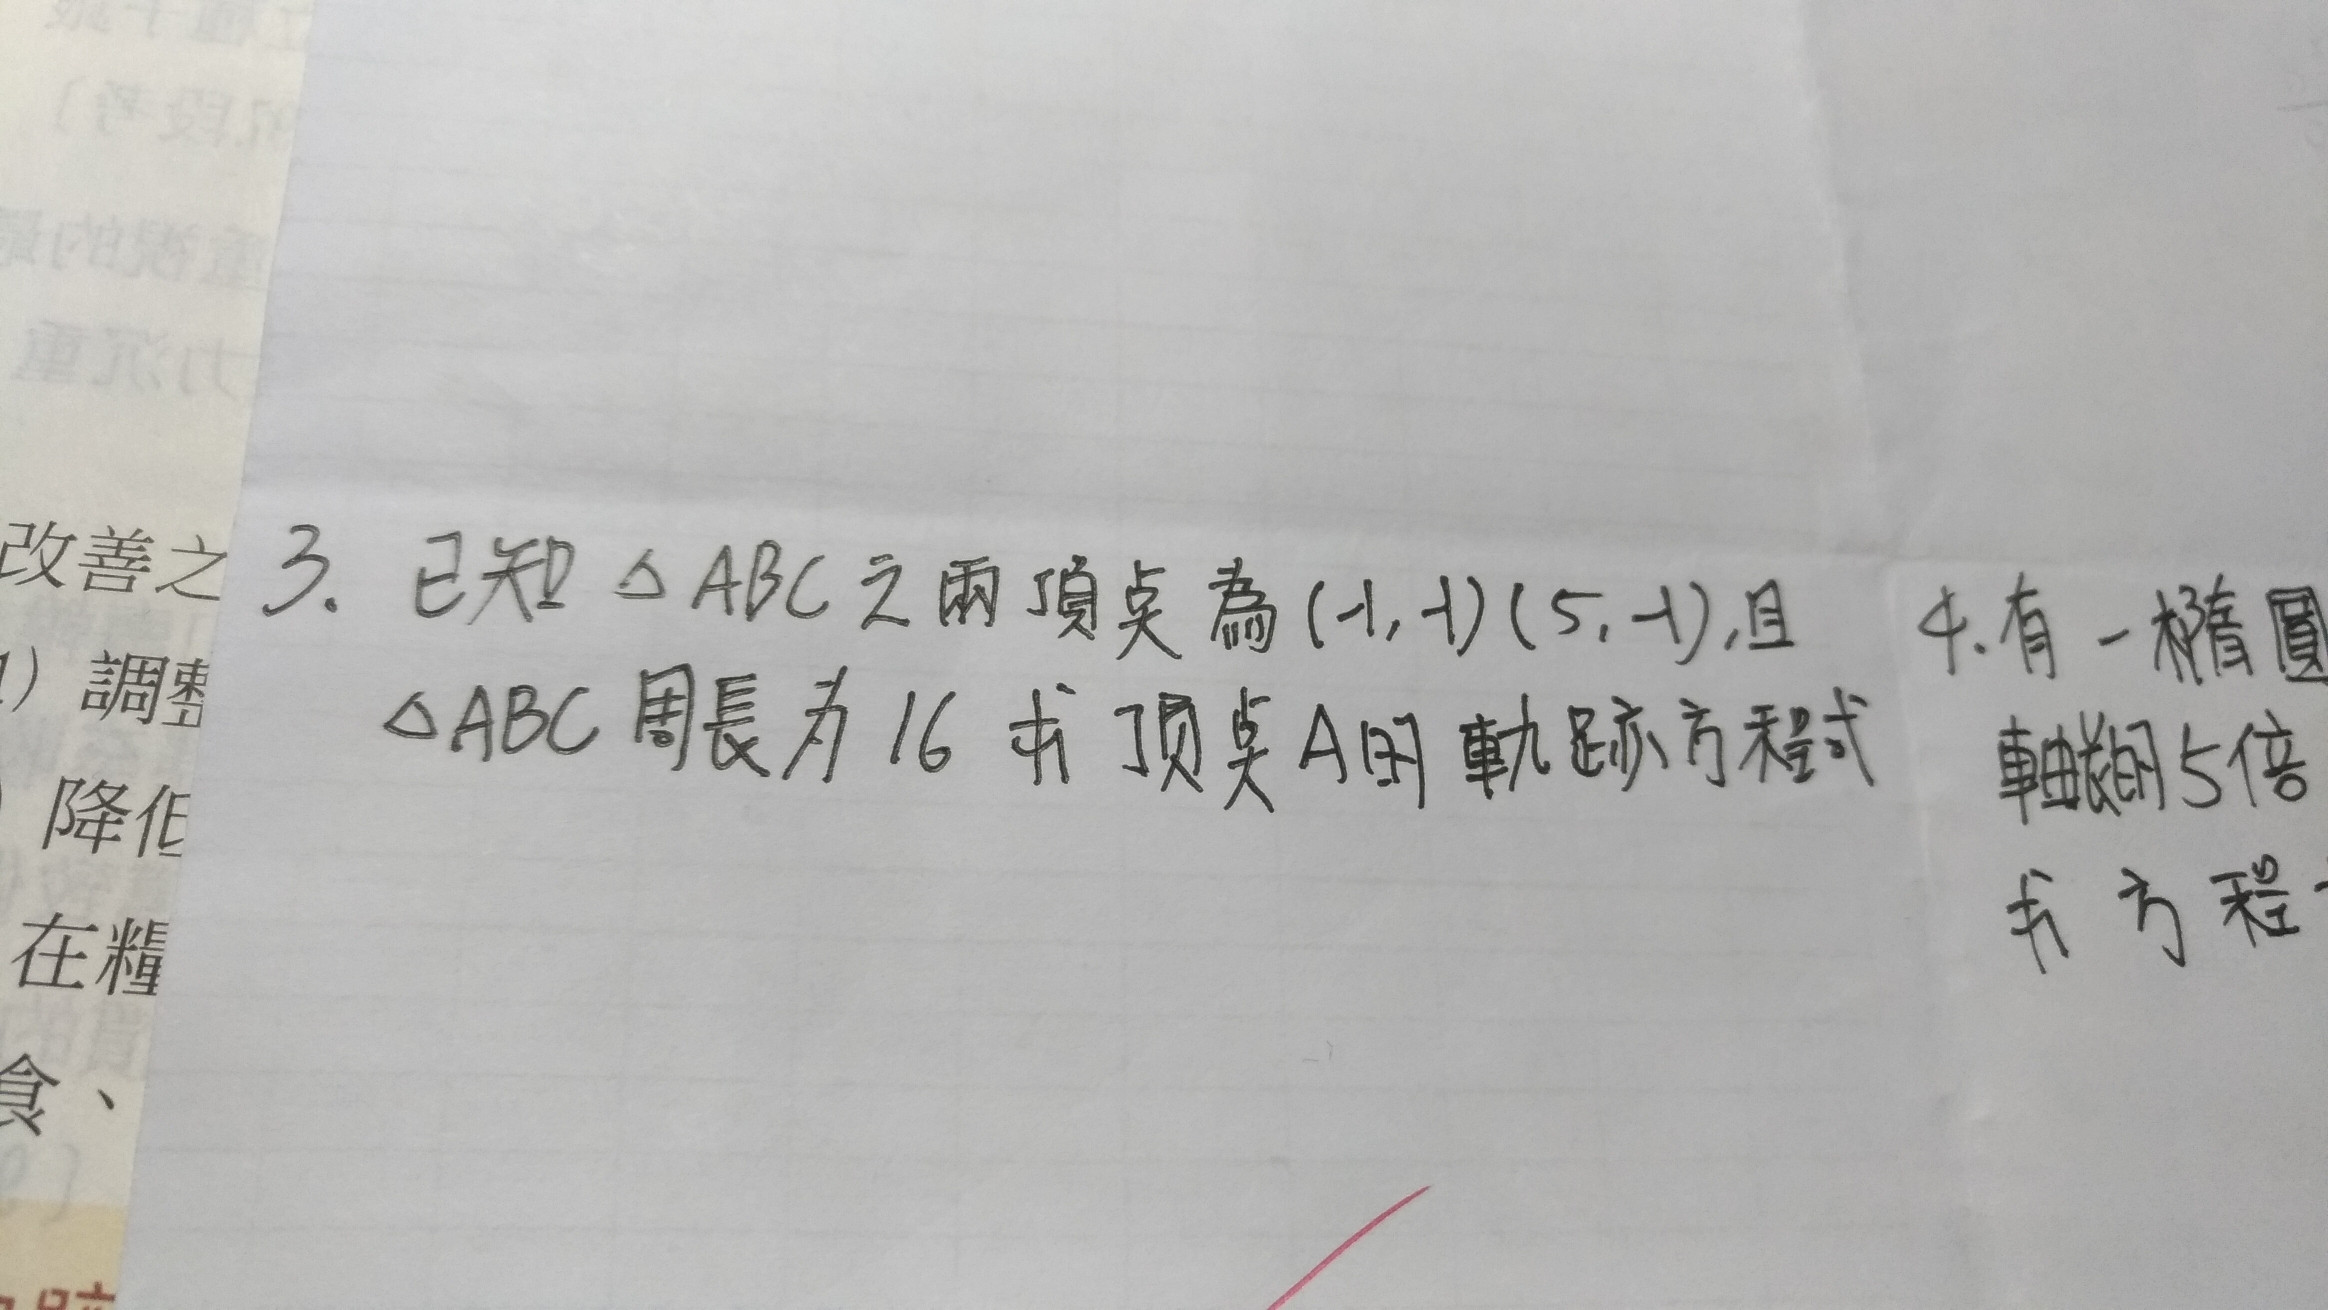 改善之
調整
降低
在糧
食、
3. 已知△ABC之兩頂点為(-1,-1)(5,-1),且
△ABC周長为16求顶点A的軌跡方程式
4.有一橢圓
軸長的5倍
求方程